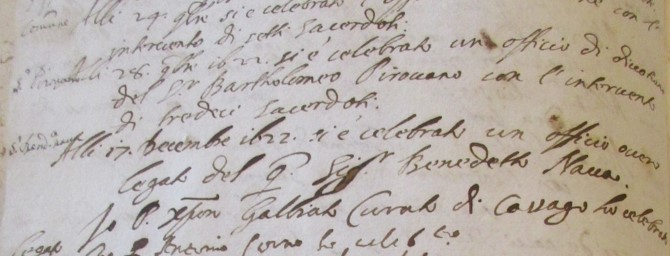 Comune Alli 29. 9bre si è celebrato un officio con l'
intervento di sette Sacerdoti.
Alli 28. 9bre 1622. si è celebrato un officio di
del Sr. Bartholomeo Pirovano con l'intervento
di tredeci Sacerdoti.
Alli 17. Decembre 1622. si è celebrato un officio overo
legato del q. Sigr. Benedetto Nava.
Io P. xpforo Galbiato Curato di Cassago ho celebrato
Legato Io P. Antonio Corno ho celebto